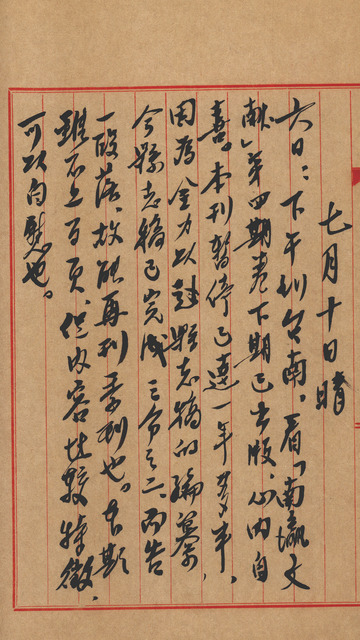 七月十日晴
六日：下午到台南，看「南瀛文
献」第四期卷下期已出版，心内自
喜。本刊暂停已達一年多矣，
因為全力以赴縣志稿的編纂
今縣志稿已完成三分之二、而告
一段落、故能再刊學刊也。本期
雖不上百頁、但内容比較特徵，
可以自慰也。